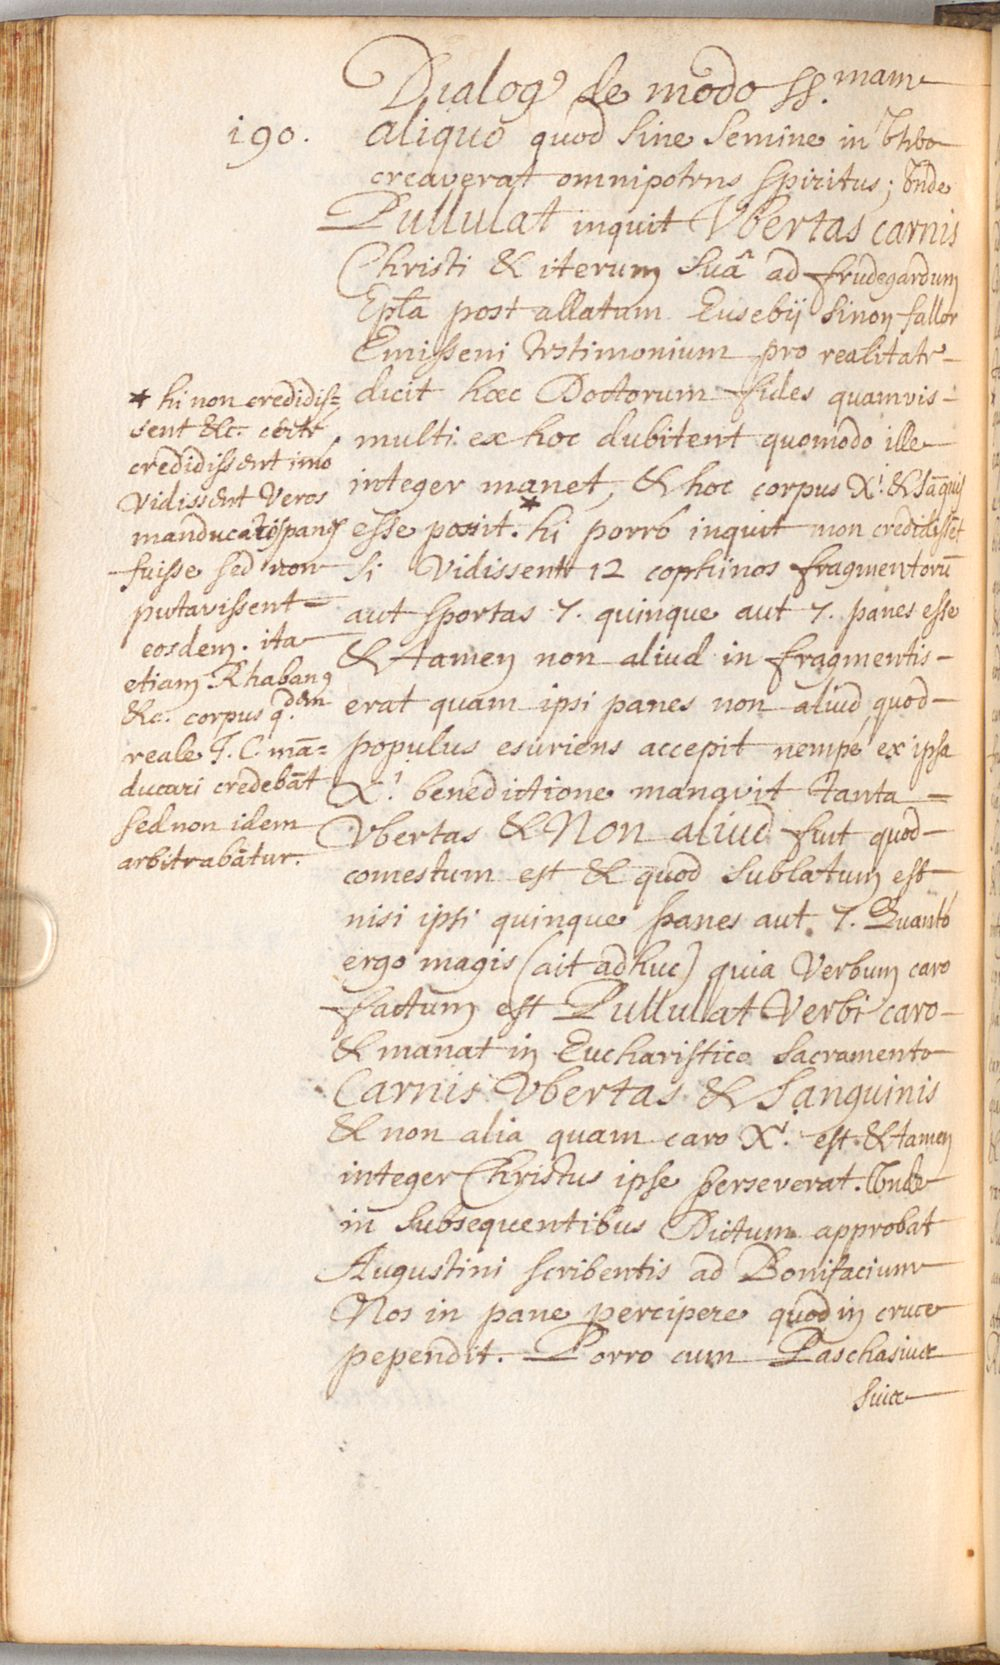 Dialog⁹ de modo SS.mam
190.
aliquo quod sine semine in Utero
creaverat omnipotens Spiritus; Unde
Pullulat inquit Ubertas carnis
Christi & iterum suâ ad frudegardum
Epl̃a post allatum Eusebij sinon fallor
Emisseni testimonium pro realitate
dicit hæc Doctorum fides quamvis
multi ex hoc dubitent quomodo ille
integer manet, & hoc corpus X.i & sãguis
esse possit.* hi porrò inquit non credidissẽt
si Vidissent 12 cophinos fragmentorũ
aut sportas 7. quinque aut 7. panes esse
& tamen non aliud in fragmentis
erat quam ipsi panes non aliud quod
populus esuriens accepit nempe ex ipsa
X.i benedictione manavit tanta
Ubertas & Non aliud fuit quod
comestum est & quod sublatum est
nisi ipsi quinque panes aut 7. Quantò
ergo magis (ait adhuc) quia Verbum caro
factum est Pullulat Verbi caro
& manat in Eucharistico Sacramento
Carnis Ubertas & Sanguinis
& non alia quam caro X.i est & tamen
integer Christus ipse perseverat. Unde
in subsequentibus Dictum approbat
Augustini scribentis ad Bonifacium
Nos in pane percipere quod in cruce
pependit. Porro cum Paschasius
* hi non credidis=
sent &c. certe
credidissent imò
Vidissent Veros
manducatos panes
fuisse sed non
putavissent
eosdem. ita
etiam Rhaban⁹
&c. corpus q.dem
reale J. C. mã=
ducari credebãt
sed non idem
arbitrabãtur.